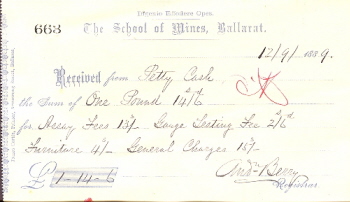 668 The School of Mines, Ballarat.
12/9/1889.
Received from Petty Cash
the Sum of One Pound 14/6
for Assay Fees 13/- Gauge Testing Fee 2/6
Furniture 4/- General Charges 15/-
£1-14-6 Andw Berry
Registrar